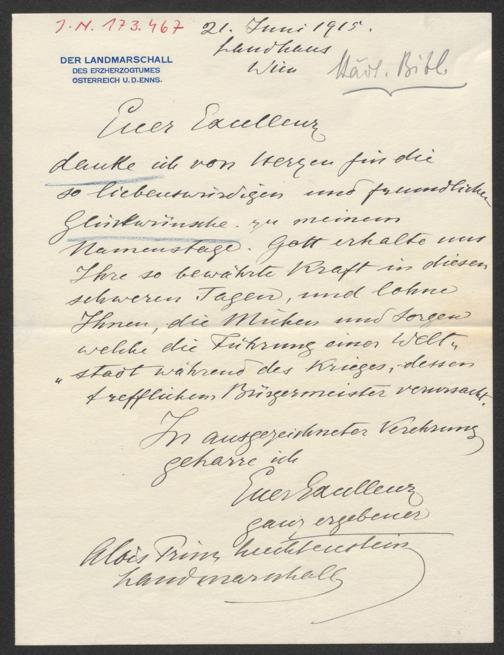 J. N. 173.467
21. Juni 1915.
Landhaus
Wien
Städt. Bibl.
DER LANDMARSCHALL
DES ERZHERZOGTUMES
ÖSTERREICH U. D. ENNS.
Euer Excellenz
danke ich von Herzen für die
so liebenswürdigen und freundlichen
Glückwünsche zu meinem
Namenstage. Gott erhalte uns
Ihre so bewährte Kraft in diesen
schweren Tagen, und lohne
Ihnen, die Mühen und Sorgen
welche die Führung einer Welt„
„stadt während des Krieges, dessen
trefflichem Bürgermeister verursacht.
In ausgezeichneter Verehrung
geharre ich
Euer Excellenz
ganz ergebener
Alois Prinz Liechtenstein
Landmarschall